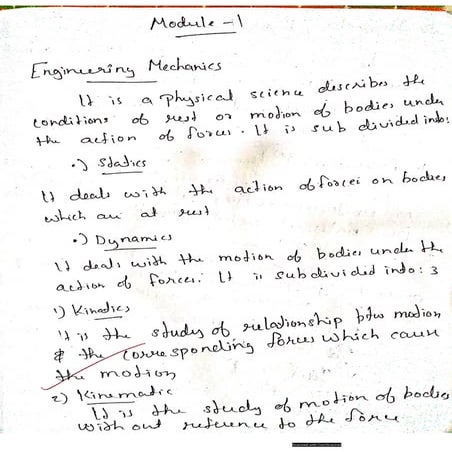 Module -1
Engineering Mechanics
It is a physical science describes the
conditions of rest or motion of bodies under
the action of forces. It is sub divided into:
•) Statics
It deals with the action of forces on bodies
which are at rest
•) Dynamics
It deals with the motion of bodies under the
action of forces. It is subdivided into: 3
1) Kinetics
It is the study of relationship b/w motion
& the corresponding forces which cause
the motion
2) Kinematic
It is the study of motion of bodies
without reference to the force